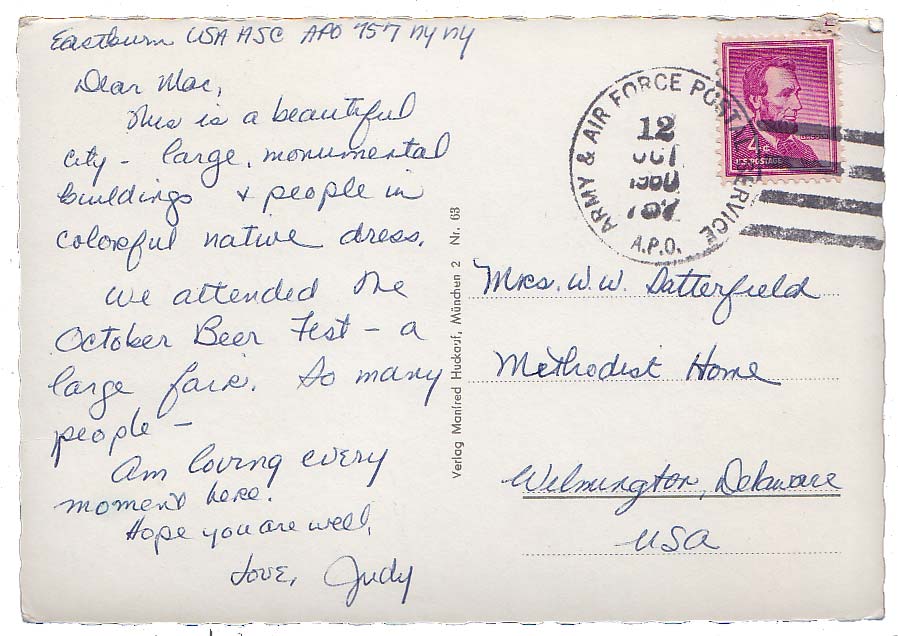 Eastburn USA HSC APO 757 NY NY
Dear Mac,
This is a beautiful
city - large, monumental
buildings + people in
colorful native dress.
We attended the
October Beer Fest - a
large fair. So many
people -
Am loving every
moment here.
Hope you are well,
Love, Judy
Verlag Manfred Huckauf, München 2 Nr. 63
ARMY & AIR FORCE POSTAL SERVICE
12
OCT
1960
757
A.P.O.
4¢
U.S. POSTAGE
Mrs. W. W. Satterfield
Methodist Home
Wilmington, Delaware
USA